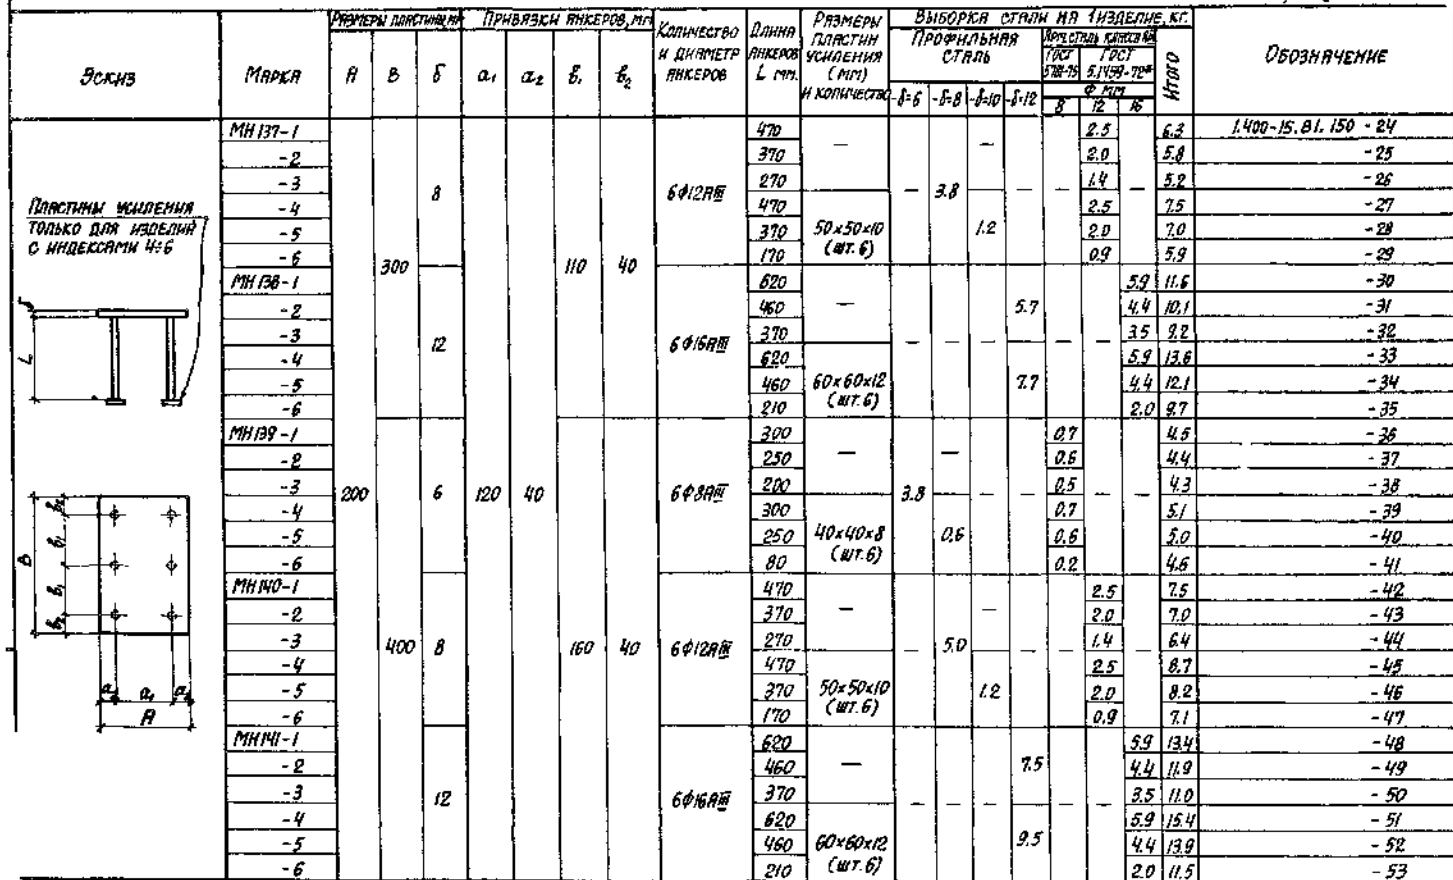 Эскиз
Марка
Размеры пластины, мм
A B δ
Привязки анкеров, мм
a₁ a₂ b₁ b₂
Количество и диаметр анкеров
Длина анкеров L мм.
Размеры пластин усиления (мм) и количество
Выборка стали на 1 изделие, кг.
Профильная сталь
-δ=6 -δ=8 -δ=10 -δ=12
Арм. сталь класса АIII
ГОСТ 5781-75
ГОСТ 5.1459-72*
Ф мм
8 12 16
Итого
Обозначение
Пластины усиления
только для изделий
с индексами 4÷6
L
B b₂ b₁ b₁ b₂
a₂ a₁ a₂
A
200 120 40
300 110 40
400 160 40
МН 137-1 8 6Ф12АIII 470 — — 3.8 — — — 2.5 — 6.3 1.400-15.В1.150 -24
-2 370 2.0 5.8 -25
-3 270 1.4 5.2 -26
-4 470 50×50×10 (шт.6) 1.2 2.5 7.5 -27
-5 370 2.0 7.0 -28
-6 170 0.9 5.9 -29
МН 138-1 12 6Ф16АIII 620 — — — — 5.7 — — 5.9 11.6 -30
-2 460 4.4 10.1 -31
-3 370 3.5 9.2 -32
-4 620 60×60×12 (шт.6) 7.7 5.9 13.6 -33
-5 460 4.4 12.1 -34
-6 210 2.0 9.7 -35
МН 139-1 6 6Ф8АIII 300 — 3.8 — — — 0.7 — — 4.5 -36
-2 250 0.6 4.4 -37
-3 200 0.5 4.3 -38
-4 300 40×40×8 (шт.6) 0.6 0.7 5.1 -39
-5 250 0.6 5.0 -40
-6 80 0.2 4.6 -41
МН 140-1 8 6Ф12АIII 470 — — 5.0 — — — 2.5 — 7.5 -42
-2 370 2.0 7.0 -43
-3 270 1.4 6.4 -44
-4 470 50×50×10 (шт.6) 1.2 2.5 8.7 -45
-5 370 2.0 8.2 -46
-6 170 0.9 7.1 -47
МН 141-1 12 6Ф16АIII 620 — — — — 7.5 — — 5.9 13.4 -48
-2 460 4.4 11.9 -49
-3 370 3.5 11.0 -50
-4 620 60×60×12 (шт.6) 9.5 5.9 15.4 -51
-5 460 4.4 13.9 -52
-6 210 2.0 11.5 -53